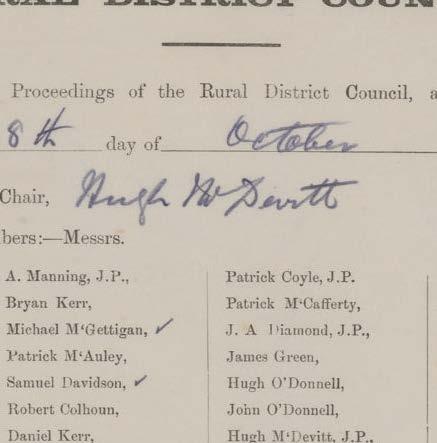 RAL DISTRICT COUN
Proceedings of the Rural District Council, a
8th day of October
Chair, Hugh McDevitt
bers:—Messrs.
A. Manning, J.P.,
Bryan Kerr,
Michael M‘Gettigan, ✓
Patrick M‘Auley,
Samuel Davidson, ✓
Robert Colhoun,
Daniel Kerr,
Patrick Coyle, J.P.
Patrick M‘Cafferty,
J. A Diamond, J.P.,
James Green,
Hugh O’Donnell,
John O’Donnell,
Hugh M‘Devitt, J.P.,